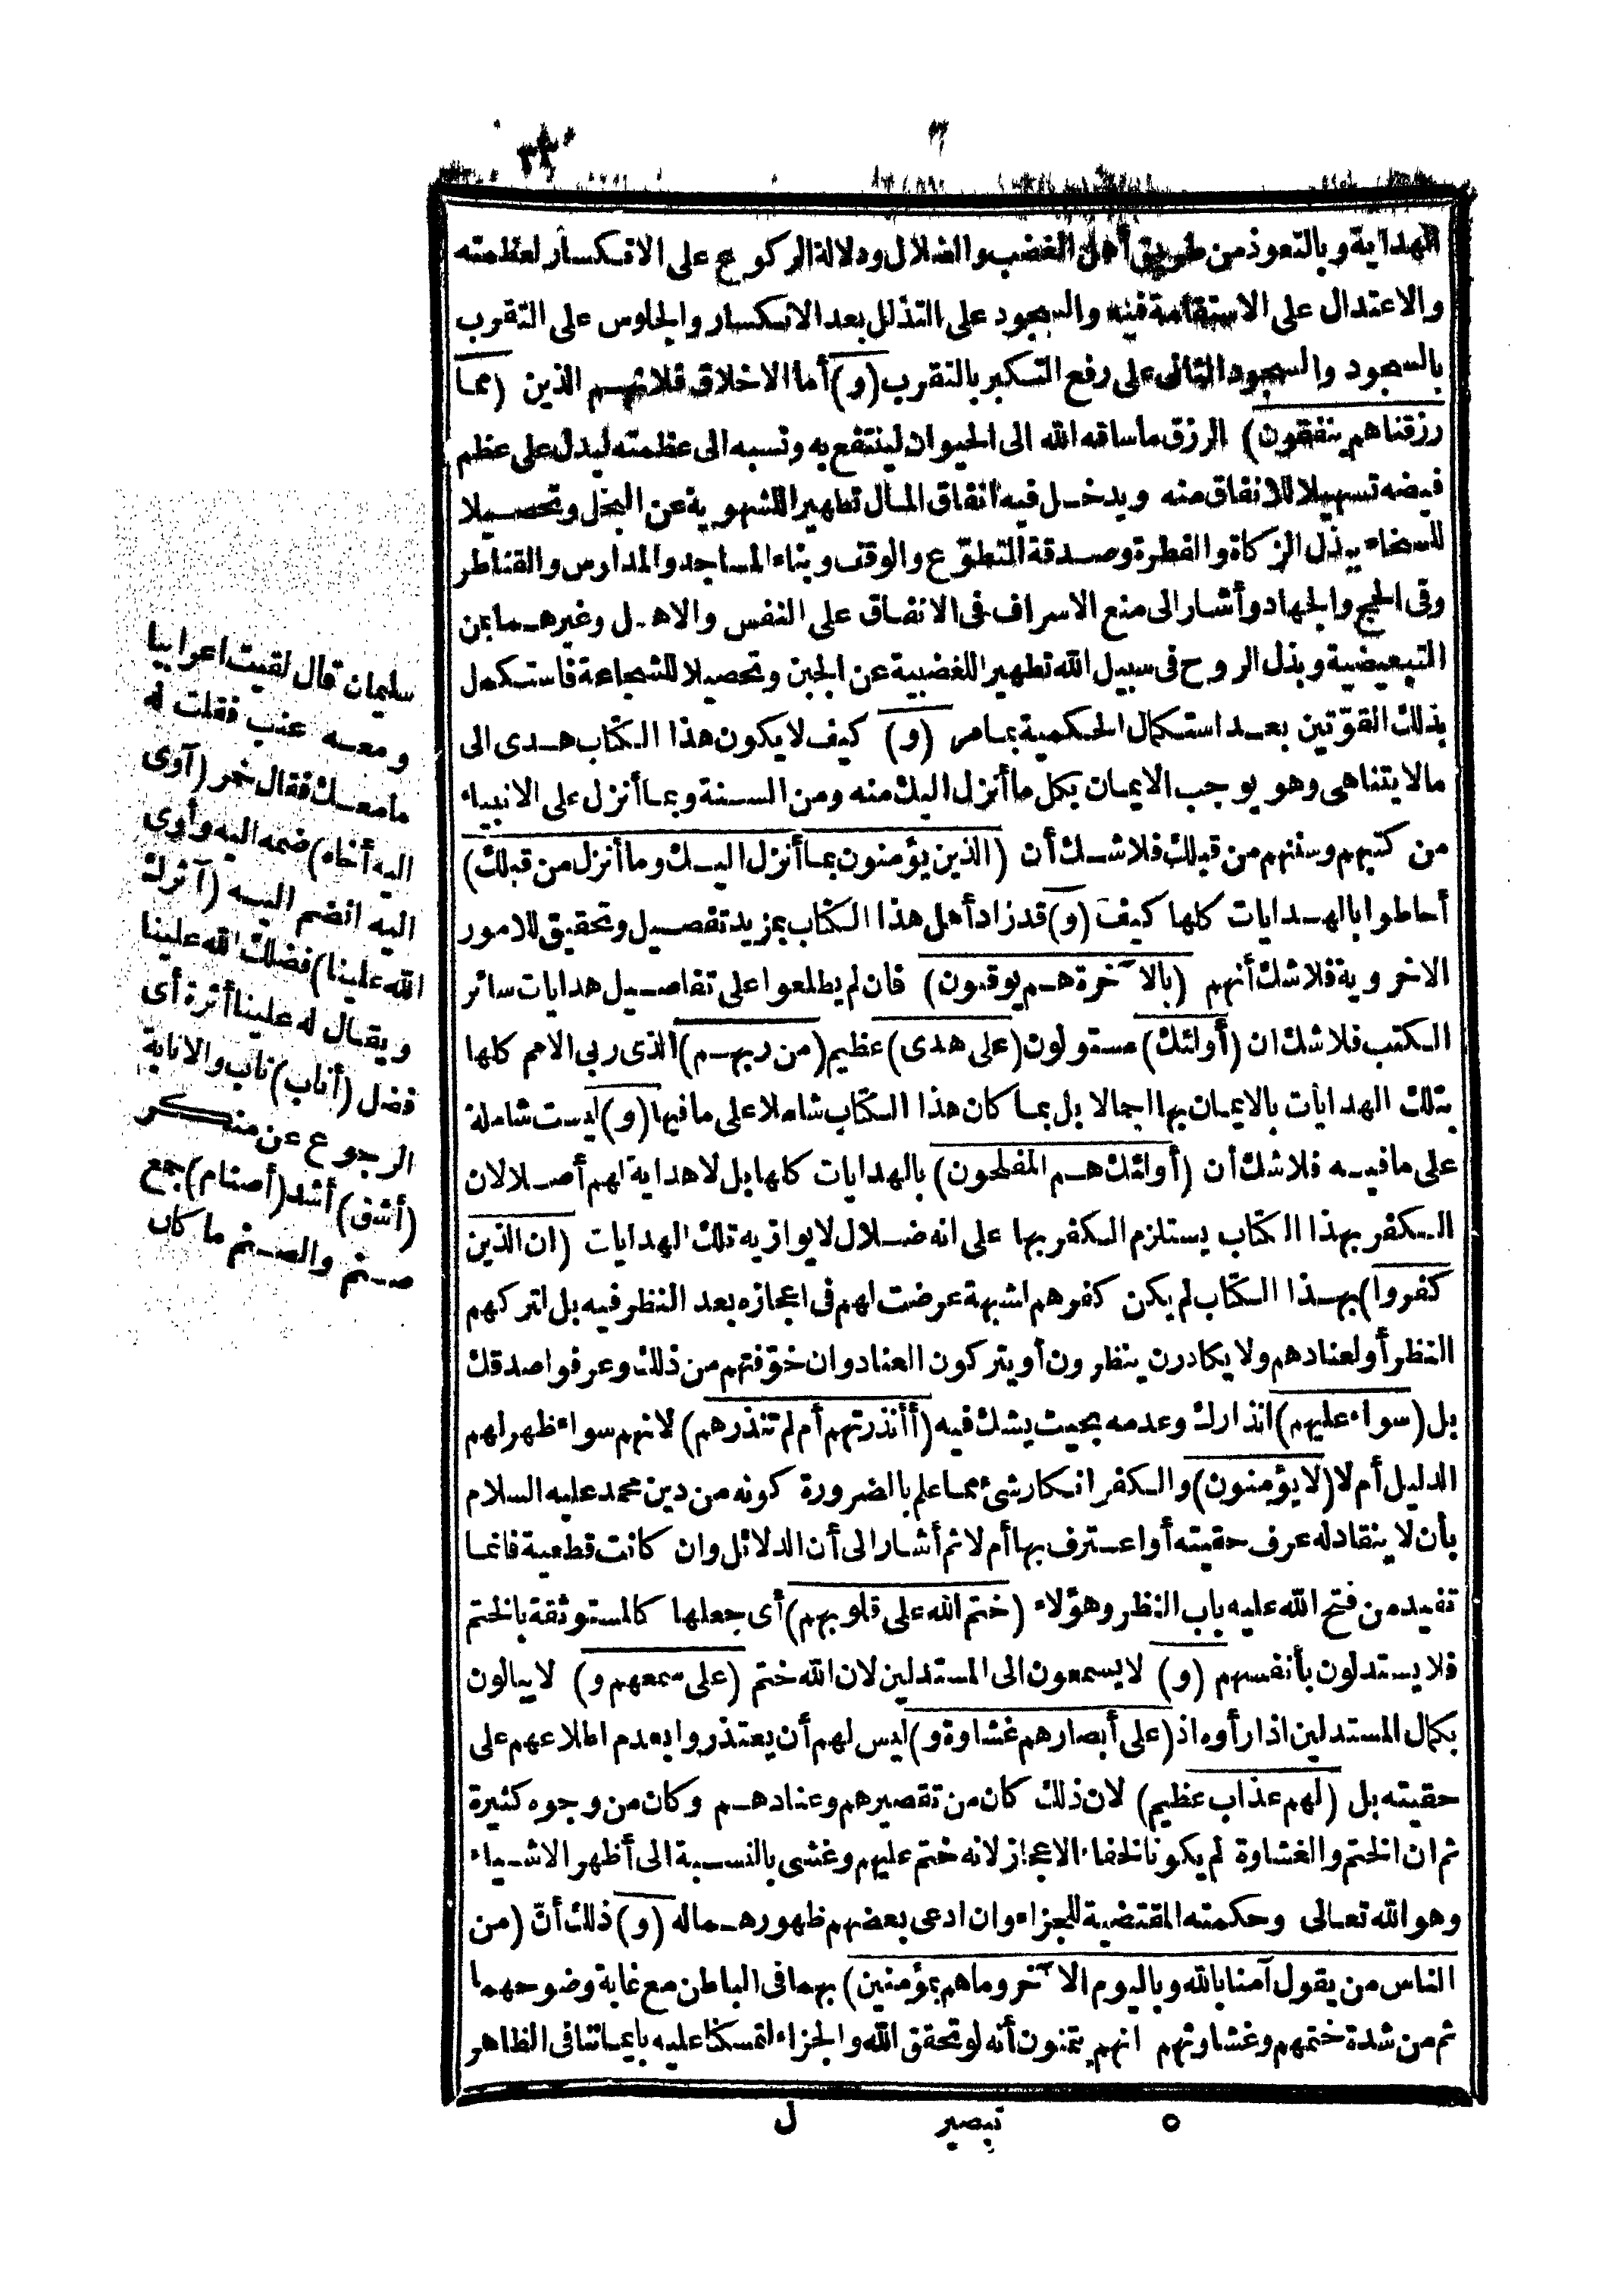 الهداية وبالتعوذ من طريق أهل الغضب والضلال ودلالة الركوع على الانكسار لعظمته
والاعتدال على الاستقامة فيه والسجود على التذلل بعد الانكسار والجلوس على التقرب
بالسجود والسجود الثاني على رفع التكبر بالتقرب (و) أما الاخلاق فلانهم الذين (مما
رزقناهم ينفقون) الرزق ما ساقه الله الى الحيوان لينتفع به ونسبه الى عظمته ليدل على عظم
فيضه تسهيلا للانفاق منه ويدخل فيه انفاق المال تطهيرا للشهوية عن البخل وتحصيلا
للسخاء ببذل الزكاة والفطرة وصدقة التطوّع والوقف وبناء المساجد والمدارس والقناطر
وفي الحج والجهاد وأشار الى منع الاسراف في الانفاق على النفس والاهل وغيرهما بمن
التبعيضية وبذل الروح في سبيل الله تطهيرا للغضبية عن الجبن وتحصيلا للشجاعة فاستكمل
بذلك القوّتين بعد استكمال الحكمية بمامر (و) كيف لا يكون هذا الكتاب هدى الى
مالا يتناهى وهو يوجب الايمان بكل ما أنزل اليك منه ومن السنة وبما أنزل على الانبياء
من كتبهم وسننهم من قبلك فلا شك أن (الذين يؤمنون بما أنزل اليك وما أنزل من قبلك)
أحاطوا بالهدايات كلها كيف (و) قد زاد أهل هذا الكتاب بمزيد تفصيل وتحقيق للامور
الاخروية فلا شك أنهم (بالآخرة هم يوقنون) فان لم يطلعوا على تفاصيل هدايات سائر
الكتب فلا شك ان (أولئك) مستولون (على هدى) عظيم (من ربهم) الذي ربى الامم كلها
بتلك الهدايات بالايمان بها اجمالا بل بما كان هذا الكتاب شاملا على ما فيها (و) ليست شاملة
على ما فيه فلا شك أن (أولئك هم المفلحون) بالهدايات كلها بل لا هداية لهم أصلا لان
الكفر بهذا الكتاب يستلزم الكفر بها على انه ضلال لا يوازيه تلك الهدايات (ان الذين
كفروا) بهذا الكتاب لم يكن كفرهم لشبهة عرضت لهم في اعجازه بعد النظر فيه بل لتركهم
النظر أو لعنادهم ولا يكادرن ينظرون أو يتركون العناد وان خوّفتهم من ذلك وعرفوا صدقك
بل (سواء عليهم) انذارك وعدمه بحيث يشك فيه (أأنذرتهم أم لم تنذرهم) لانهم سواء ظهر لهم
الدليل أم لا (لا يؤمنون) والكفر انكار شئ مما علم بالضرورة كونه من دين محمد عليه السلام
بأن لا ينقاد له عرف حقيته أو اعترف بها أم لا ثم أشار الى أن الدلائل وان كانت قطعية فانما
تفيد من فتح الله عليه باب النظر وهؤلاء (ختم الله على قلوبهم) أي جعلها كالمستوثقة بالختم
فلا يستدلون بأنفسهم (و) لا يسمعون الى المستدلين لان الله ختم (على سمعهم و) لا يبالون
بكمال المستدلين اذا رأوه اذ (على أبصارهم غشاوة و) ليس لهم أن يعتذروا بعدم اطلاعهم على
حقيته بل (لهم عذاب عظيم) لان ذلك كان من تقصيرهم وعنادهم وكان من وجوه كثيرة
ثم ان الختم والغشاوة لم يكونا لخفاء الاعجاز لانه ختم عليهم وغشى بالنسبة الى أظهر الاشياء
وهو الله تعالى وحكمته المقتضية للجزاء وان ادعى بعضهم ظهورهما له (و) ذلك أنّ (من
الناس من يقول آمنا بالله وباليوم الآخر وما هم بمؤمنين) بهما في الباطن مع غاية وضوحهما
ثم من شدة ختمهم وغشاوتهم انهم يتمنون أنه لو تحقق الله والجزاء لتمسكنا عليه بايماننا في الظاهر
٥ تبصير ل
سليمان قال لقيت اعرابيا
ومعه عنب فقلت له
ما معك فقال خمر (آوى
اليه أخاه) ضمه اليه وأوى
اليه انضم اليه (آثرك
الله علينا) فضلك الله علينا
ويقال له علينا أثرة أى
فضل (أناب) تاب والانابة
الرجوع عن منكر
(أشق) أشد (أصنام) جمع
صنم والصنم ما كان